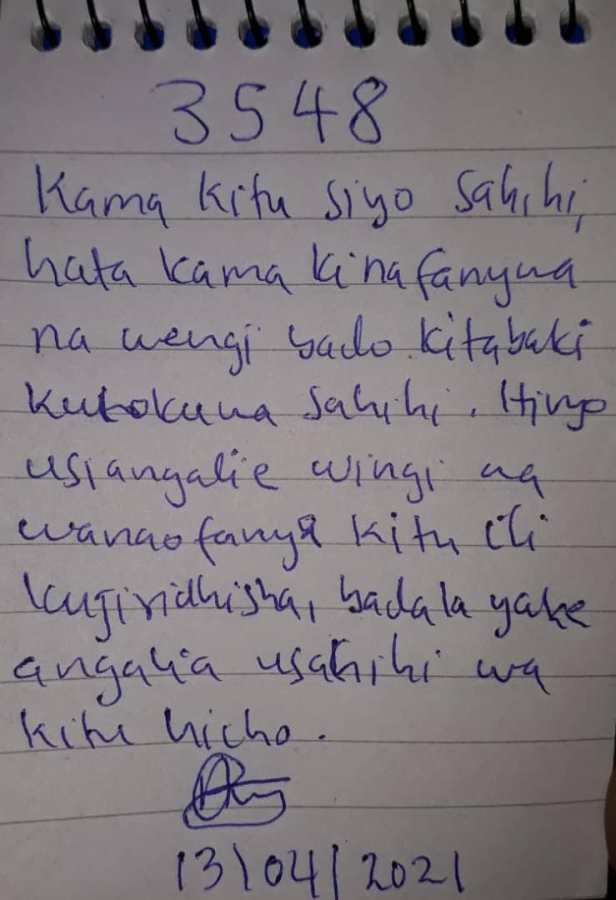 3548
Kama kitu siyo sahihi,
hata kama kinafanywa
na wengi bado kitabaki
kutokuwa sahihi. Hivyo
usiangalie wingi wa
wanaofanya kitu ili
kujiridhisha, badala yake
angalia usahihi wa
kitu hicho.
13/04/2021